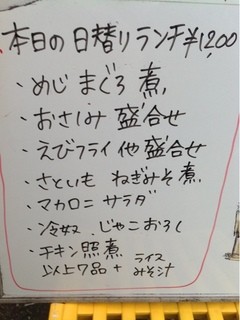 本日の日替りランチ¥1200
・めじまぐろ煮
・おさしみ盛合せ
・えびフライ他盛合せ
・さといもねぎみそ煮
・マカロニサラダ
・冷奴 じゃこおろし
・チキン照煮
以上7品+ライス
みそ汁